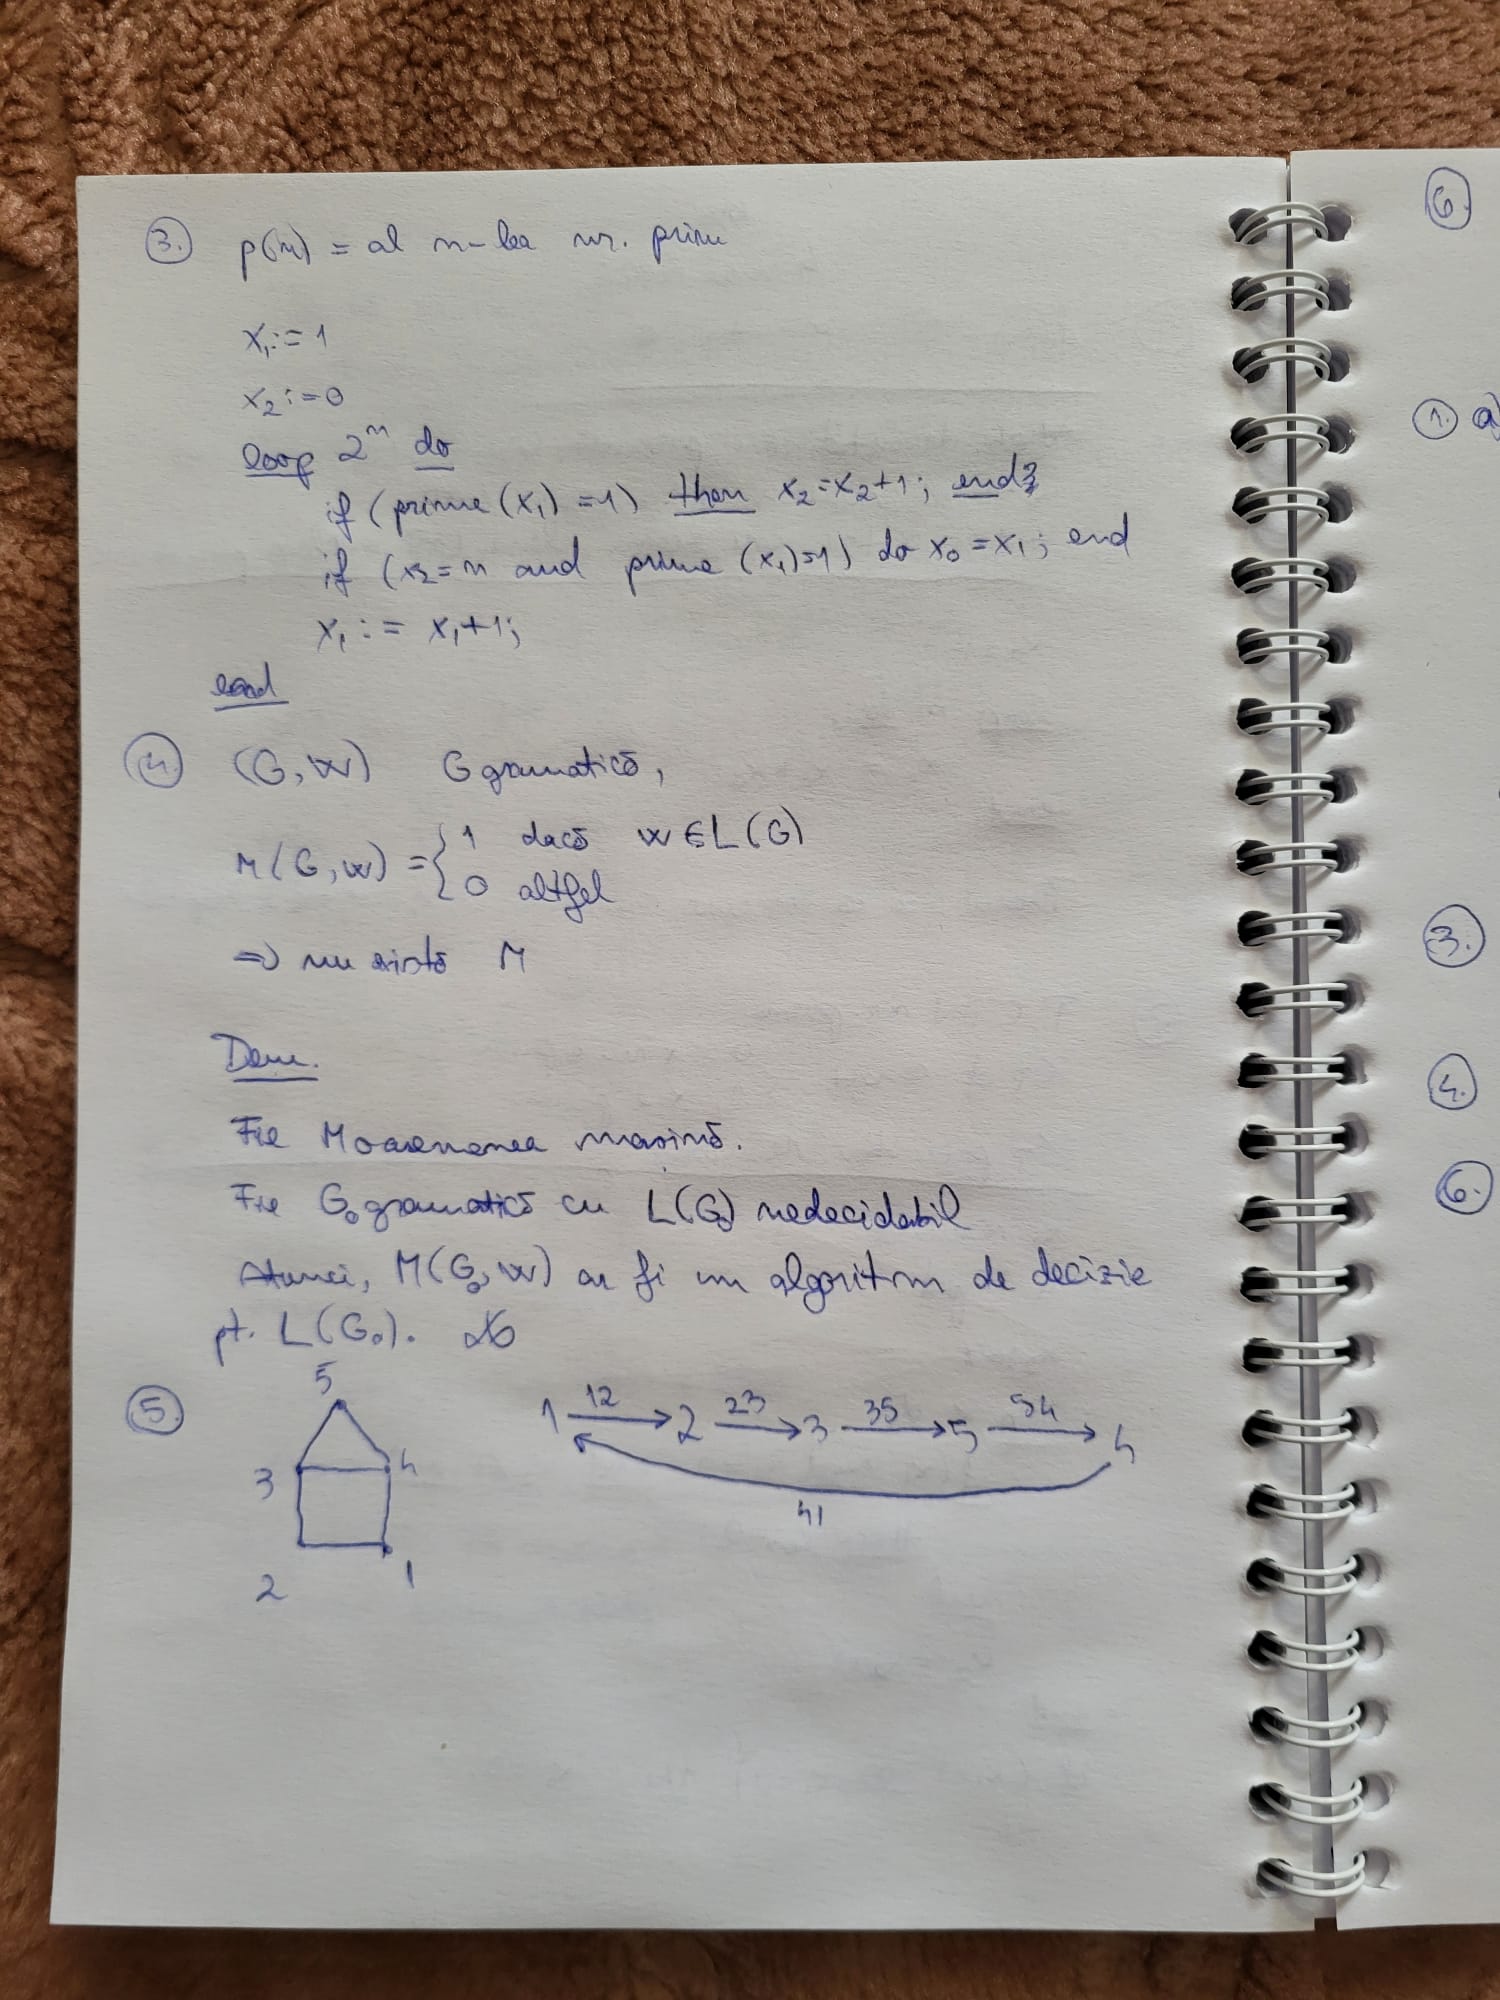 3. p(n) = al n-lea nr. prim
x₁ := 1
x₂ := 0
loop 2ⁿ do
if (prime (x₁) = 1) then x₂ = x₂+1; end;
if (x₂ = n and prime (x₁)=1) do x₀ = x₁; end
x₁ := x₁+1;
end
4. (G, w) G gramatică,
M(G, w) = { 1 dacă w ∈ L(G)
0 altfel
=> nu există M
Dem.
Fie M o asemenea mașină.
Fie G₀ gramatică cu L(G₀) nedecidabil
Atunci, M(G₀, w) ar fi un algoritm de decizie
pt. L(G₀).
5. 5
3 4
2 1
1 12 → 2 23 → 3 35 → 5 54 → 4
41
6.
1. a)
3.
4.
6.